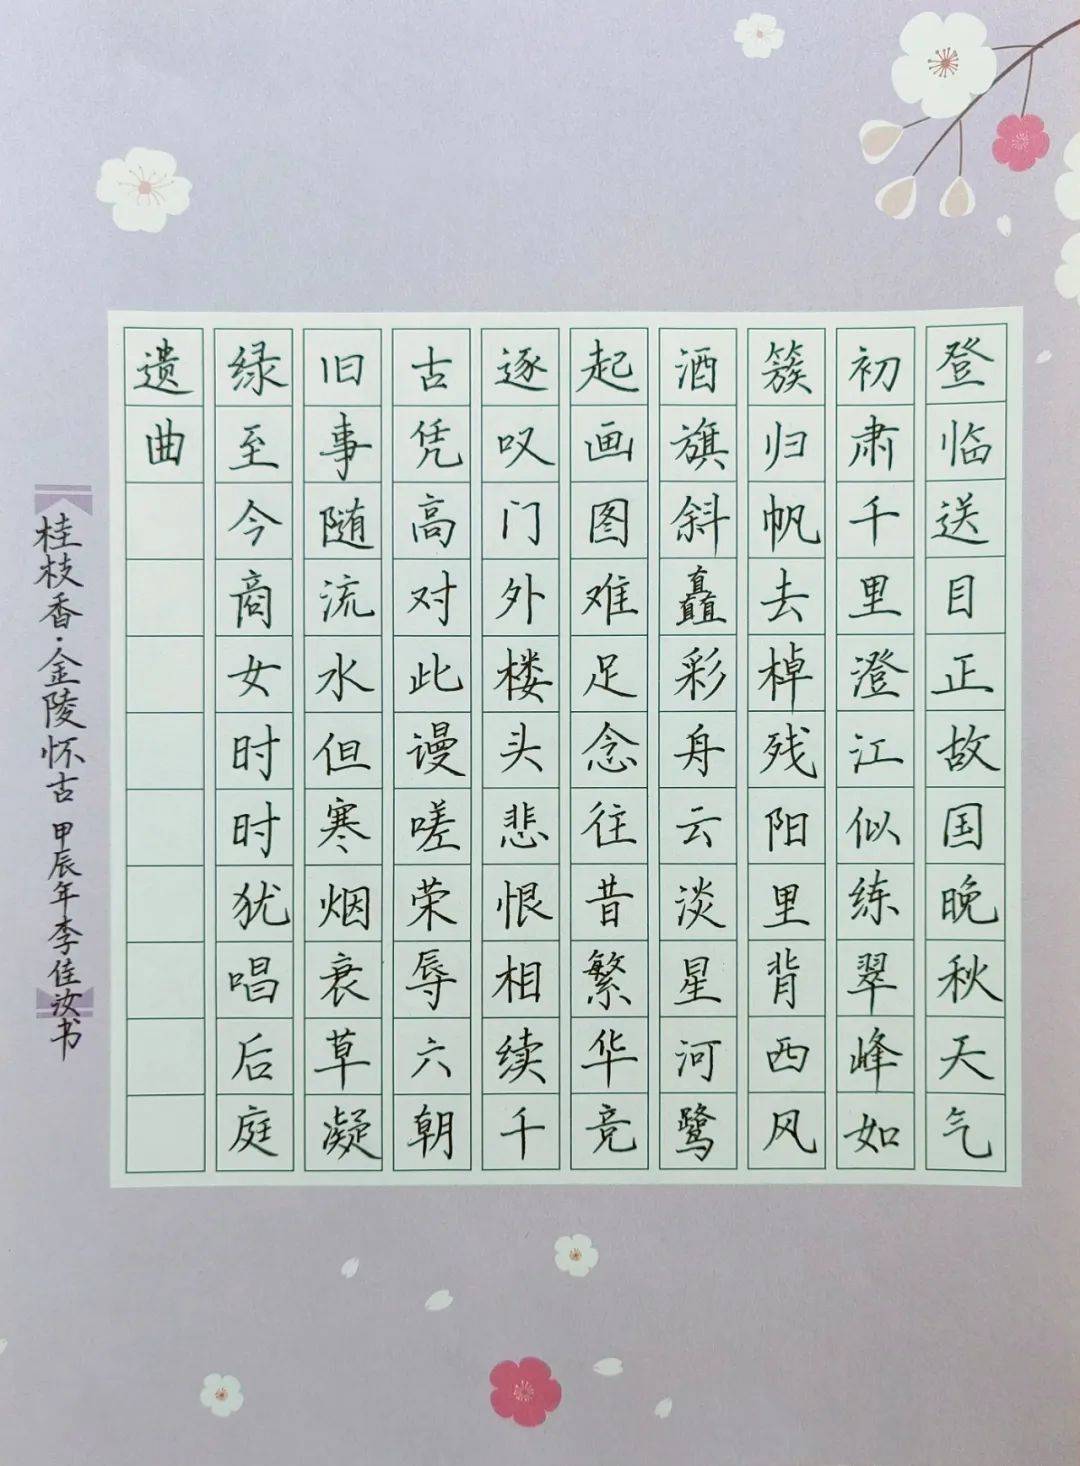 登临送目正故国晚秋天气
初肃千里澄江似练翠峰如
簇归帆去棹残阳里背西风
酒旗斜矗彩舟云淡星河鹭
起画图难足念往昔繁华竞
逐叹门外楼头悲恨相续千
古凭高对此谩嗟荣辱六朝
旧事随流水但寒烟衰草凝
绿至今商女时时犹唱后庭
遗曲
桂枝香·金陵怀古 甲辰年李佳汝书